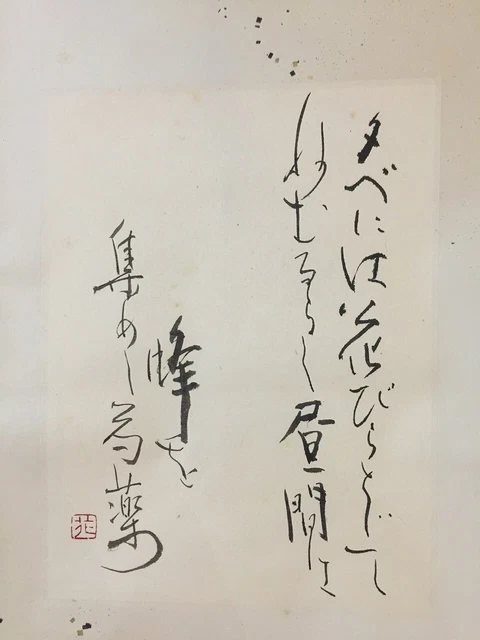 夕べには花びらとじて
ねむるらし昼間は
蜂を
集めし芍薬